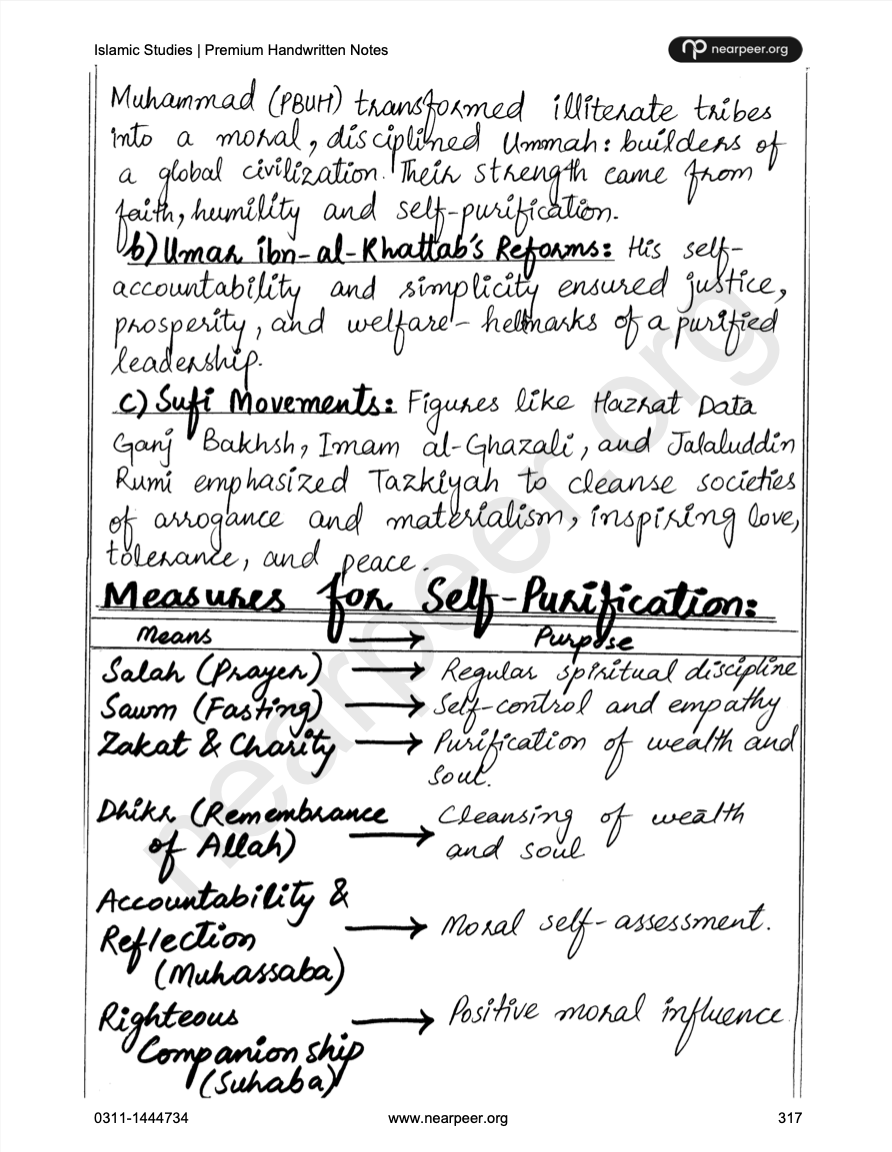 Islamic Studies | Premium Handwritten Notes
nearpeer.org
Muhammad (PBUH) transformed illiterate tribes
into a moral, disciplined Ummah: builders of
a global civilization. Their strength came from
faith, humility and self-purification.
b) Umar ibn-al-Khattab's Reforms: His self-
accountability and simplicity ensured justice,
prosperity, and welfare - hallmarks of a purified
leadership.
c) Sufi Movements: Figures like Hazrat Data
Ganj Bakhsh, Imam al-Ghazali, and Jalaluddin
Rumi emphasized Tazkiyah to cleanse societies
of arrogance and materialism, inspiring love,
tolerance, and peace.
Measures for Self-Purification:
Means → Purpose
Salah (Prayer) → Regular spiritual discipline
Sawm (Fasting) → Self-control and empathy
Zakat & Charity → Purification of wealth and
soul.
Dhikr (Remembrance → Cleansing of wealth
of Allah) and soul
Accountability &
Reflection → Moral self-assessment.
(Muhassaba)
Righteous → Positive moral influence.
Companionship
(Suhaba)
nearpeer.org
0311-1444734 www.nearpeer.org 317